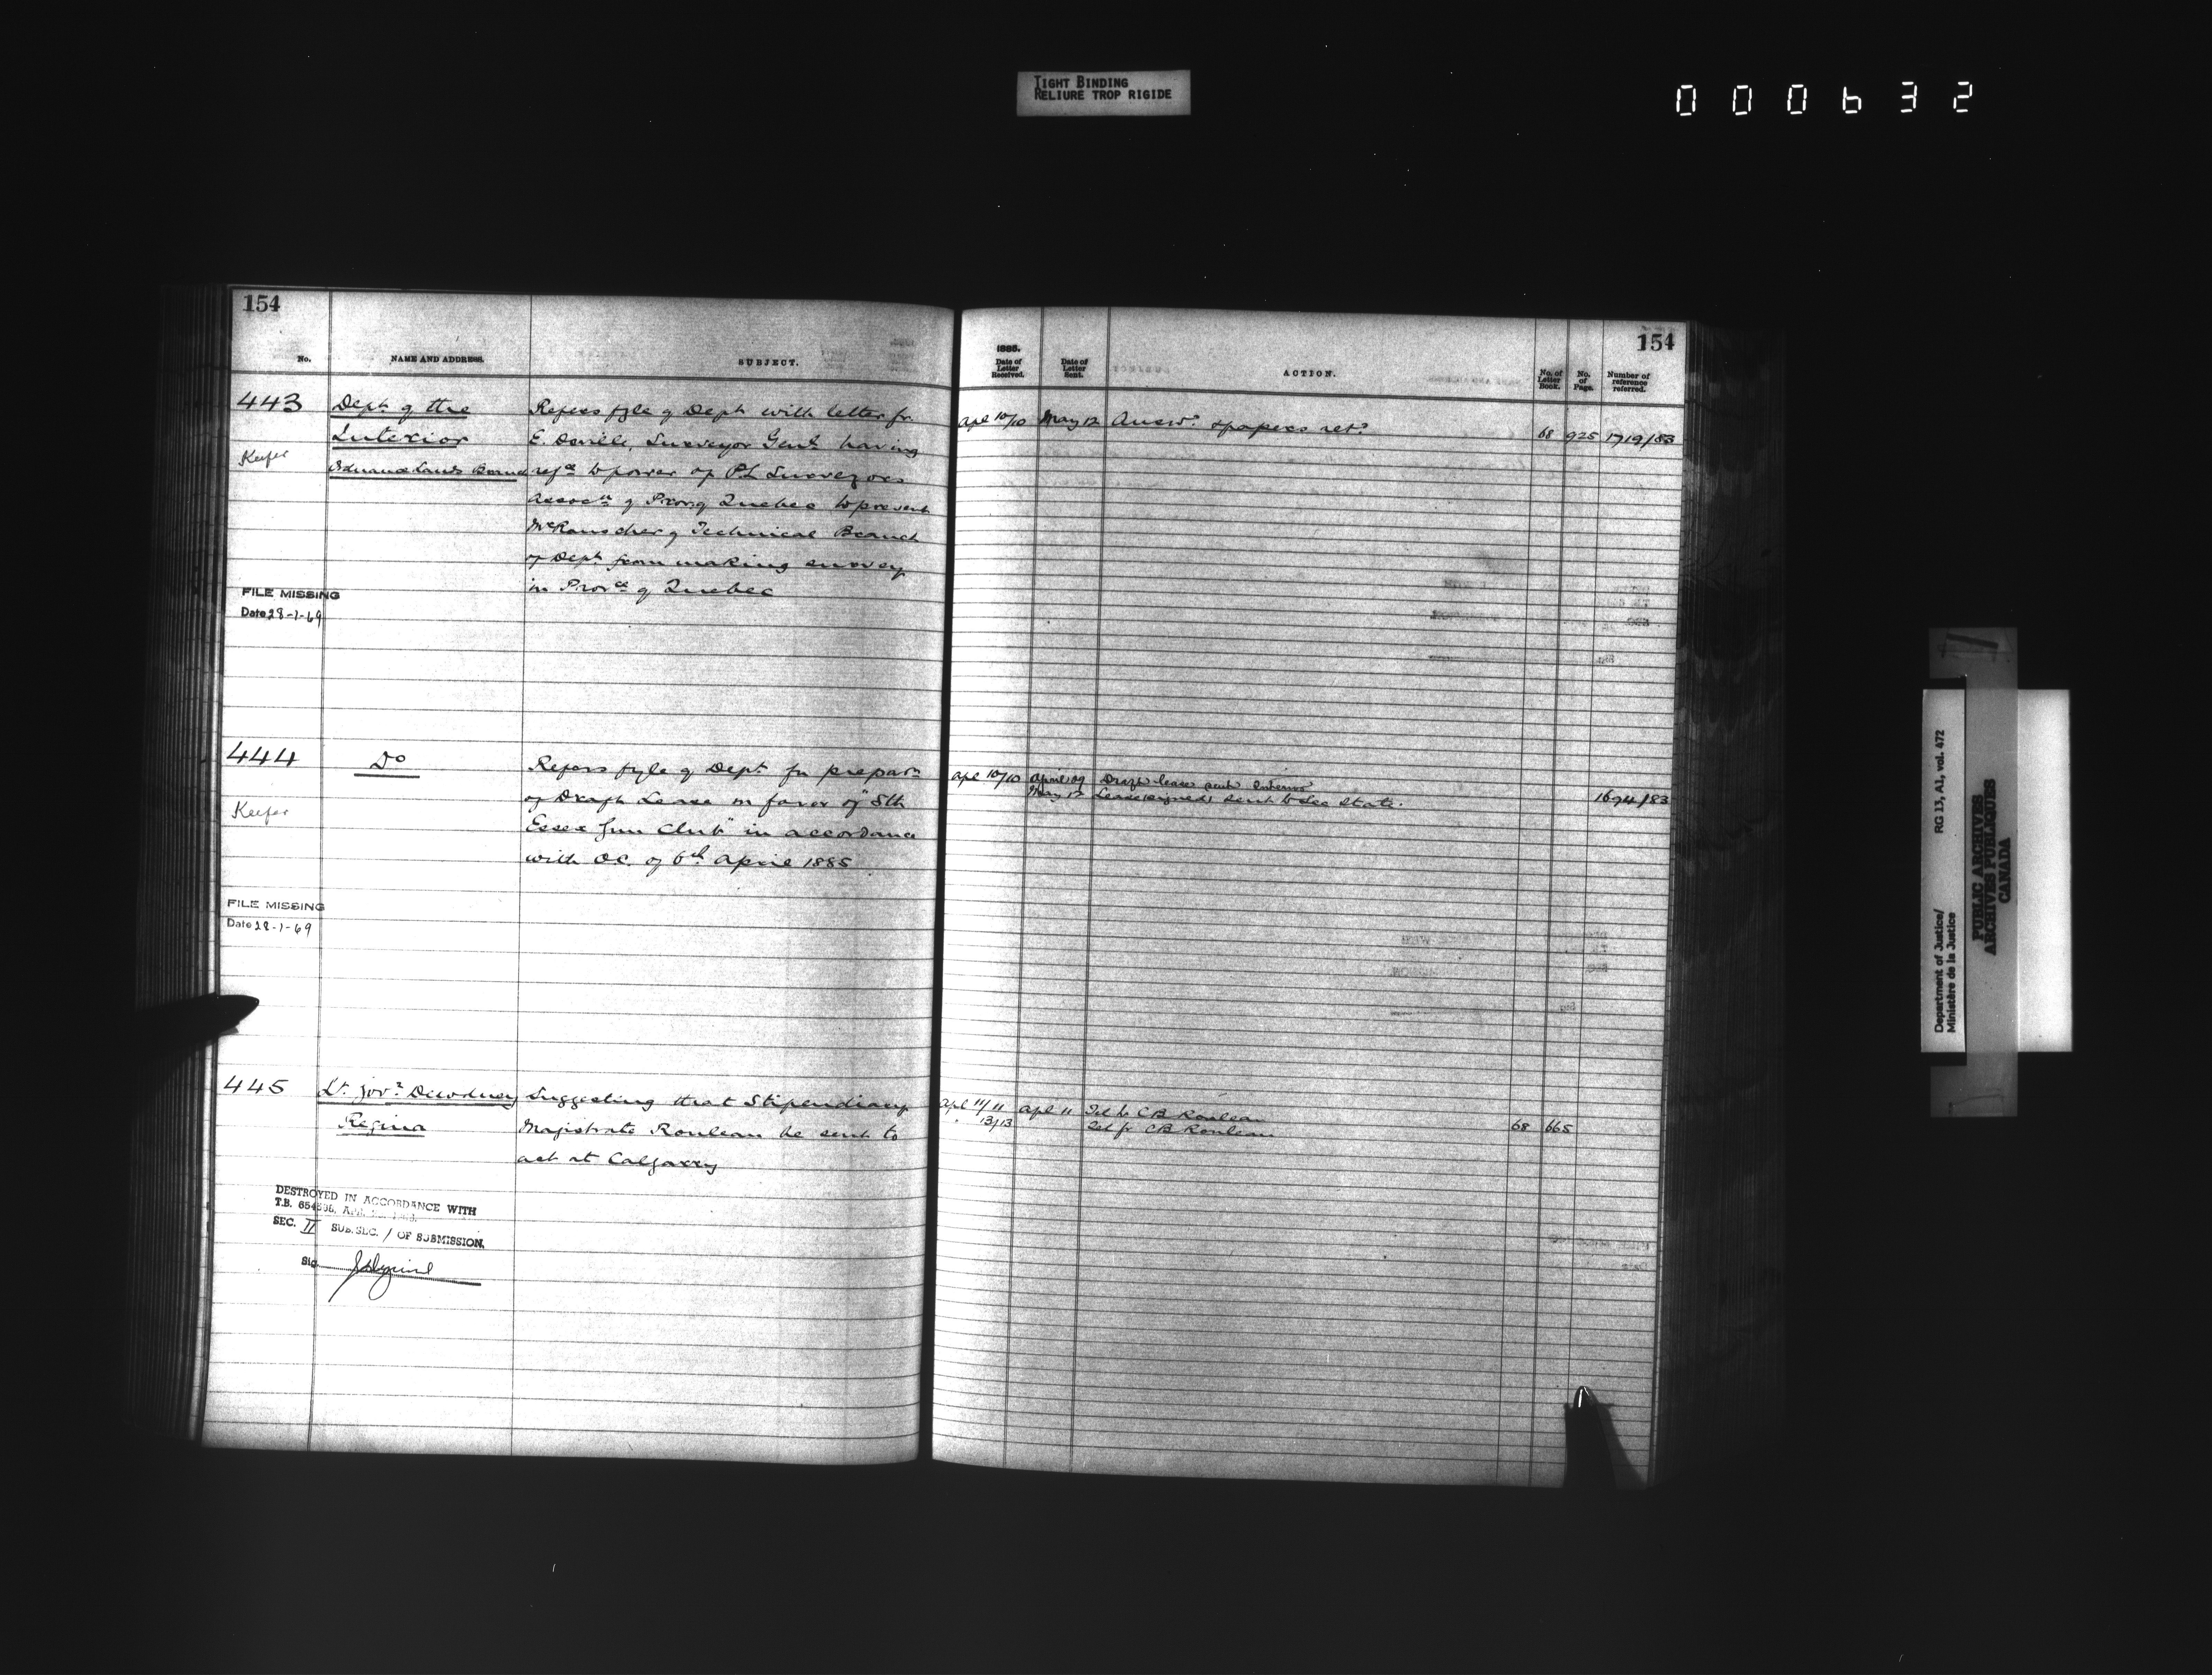 TIGHT BINDING
RELIURE TROP RIGIDE
000632
154
No.
NAME AND ADDRESS.
SUBJECT.
443
Dept of the
Interior
Keefer
Ordnance Lands Branch
Refers fyle of Dept with letter fr.
E. Deville, Surveyor Genl having
refce to power of P.L Surveyors
Assocn of Prov of Quebec to prevent
of Technical Branch
of Dept from making survey
in Provce of Quebec
FILE MISSING
Date 28-1-69
444
Do
Keefer
Refers fyle of Dept for preparn
of Draft Lease in favor of "Sth
Essex Gun Club" in accordance
with O.C. of 6th April 1885
FILE MISSING
Date 28-1-69
445
Lt. Govr Dewdney
Regina
Suggesting that Stipendiary
Magistrate Rouleau be sent to
act at Calgarry
DESTROYED IN ACCORDANCE WITH
T.B.
SEC. II SUB.SEC. 1 OF SUBMISSION.
Sig.
154
1885.
Date of Letter Received.
Date of Letter Sent.
ACTION.
No. of Letter Book.
No. of Page.
Number of reference referred.
Apl 10/10 May 12 Answd & papers retd 68 925 1719/83
Apl 10/10 April 29 Draft lease sent Interior
May 12 Lease signed & sent to Sec State. 1694/83
Apl 11/11 Apl 11 Tel to CB Rouleau
" 13/13 Tel fr CB Rouleau 68 665
Department of Justice/ RG 13, A1, vol. 472
Ministère de la Justice
PUBLIC ARCHIVES
ARCHIVES PUBLIQUES
CANADA